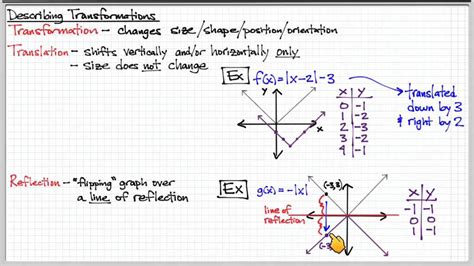 Describing Transformations
Transformation - changes size/shape/position/orientation
Translation - shifts vertically and/or horizontally only
- size does not change
Ex f(x)=|x-2|-3
translated
down by 3
& right by 2
Y
X
X Y
0 -1
1 -2
2 -3
3 -2
4 -1
Reflection - "flipping" graph over
a line of reflection
Ex g(x)=-|x|
line of
reflection
(-3,3)
(-3
X Y
-1 -1
0 0
1 -1